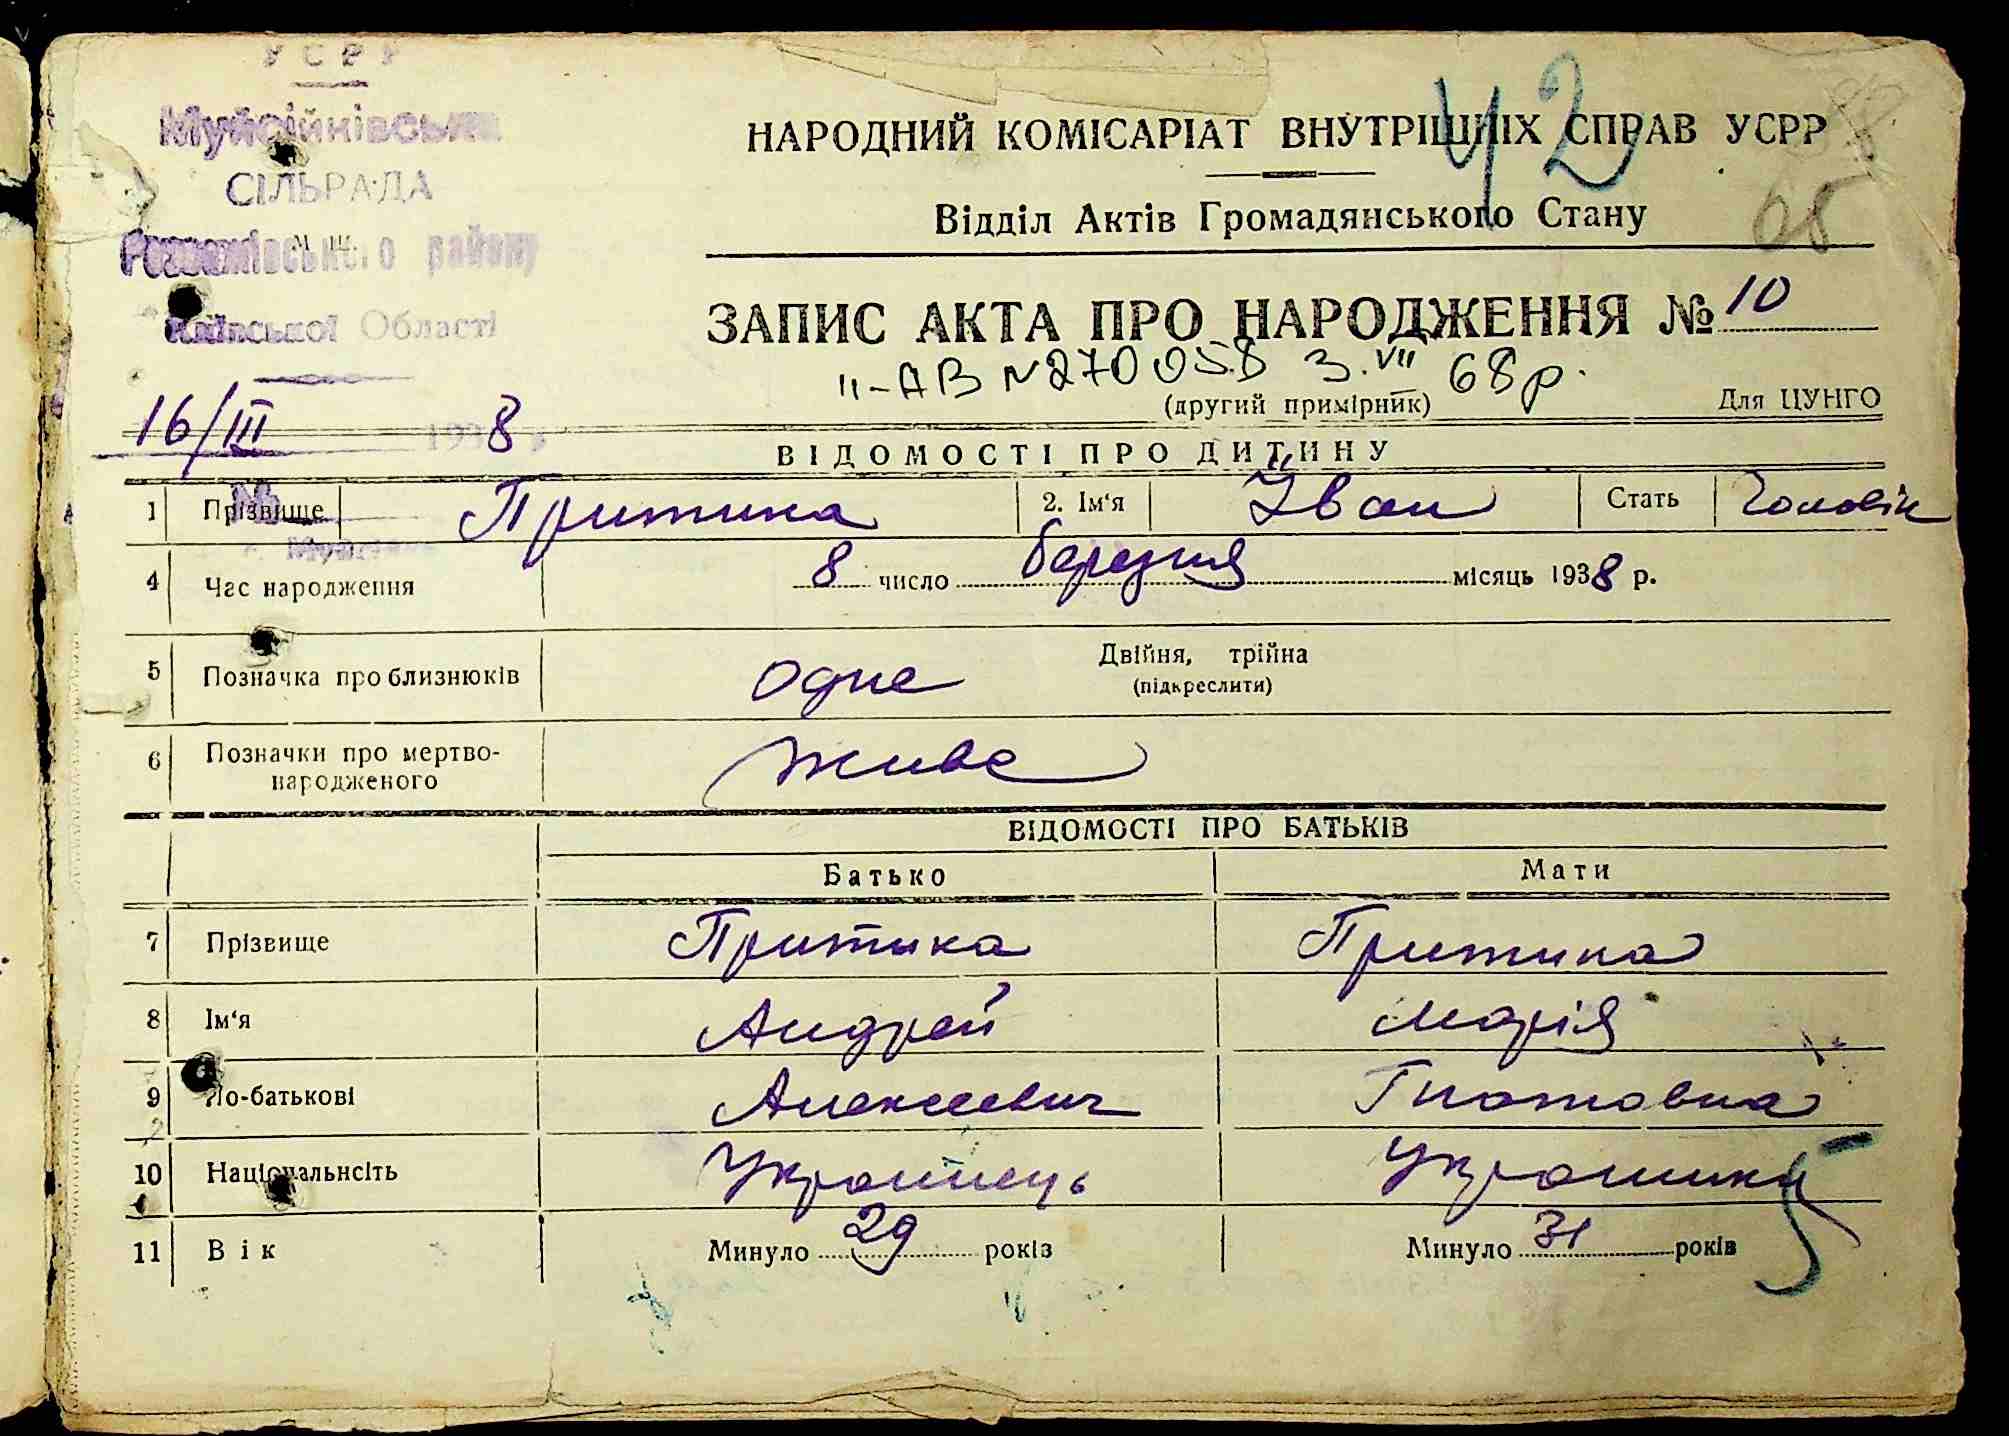 УСРР
Муйсійківська
СІЛЬРАДА
Розважівського району
Київської Області
16/III 1938 р
№
НАРОДНИЙ КОМІСАРІАТ ВНУТРІШНІХ СПРАВ УСРР
42
Відділ Актів Громадянського Стану
ЗАПИС АКТА ПРО НАРОДЖЕННЯ № 10
II-АВ №270058 3.VII 68р.
(другий примірник) Для ЦУНГО
ВІДОМОСТІ ПРО ДИТИНУ
1 Прізвище Притика 2. Ім'я Іван Стать Чоловік
4 Час народження 8 число березня місяць 1938 р.
5 Позначка про близнюків одне Двійня, трійна
(підкреслити)
6 Позначки про мертво-
народженого живе
ВІДОМОСТІ ПРО БАТЬКІВ
Батько Мати
7 Прізвище Притика Притика
8 Ім'я Андрей Марія
9 По-батькові Алексеевич Гнатовна
10 Національнсіть Українець Українка
11 Вік Минуло 29 років Минуло 31 років
5